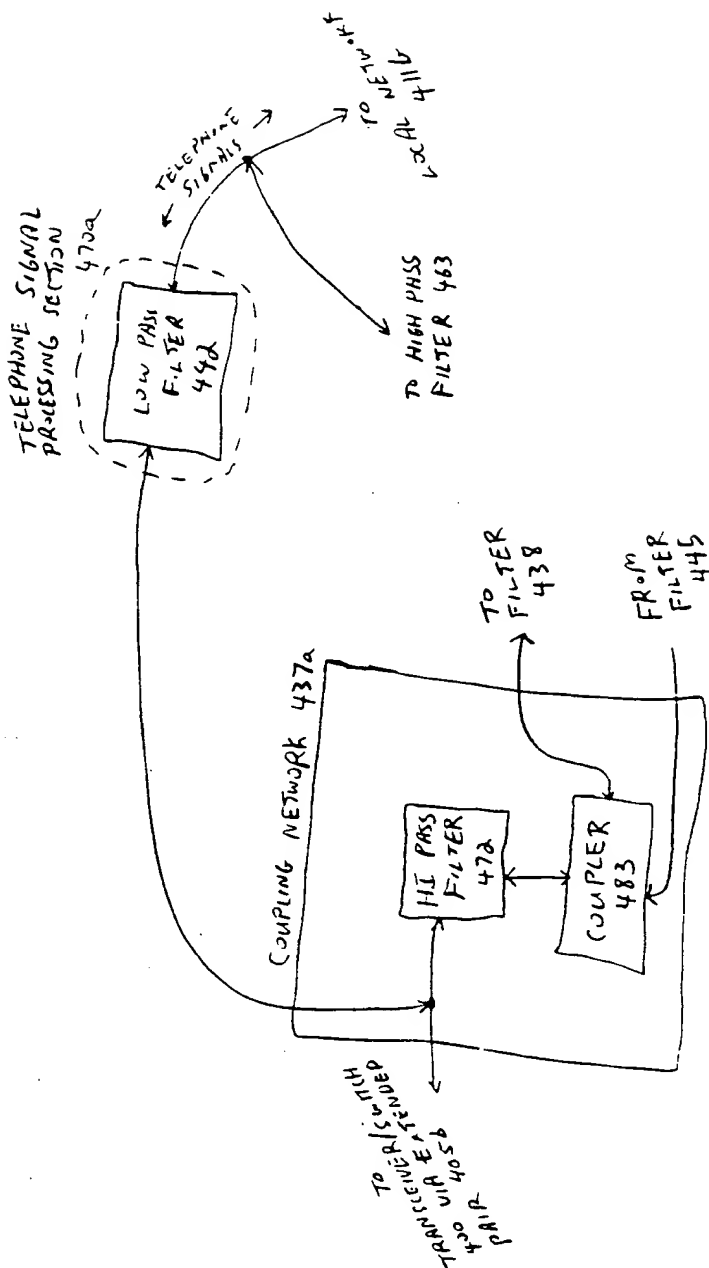 TELEPHONE SIGNAL
PROCESSING SECTION
470a
LOW PASS
FILTER
442
TELEPHONE
SIGNALS
TO
LOCAL NETWORK
411b
TO HIGH PASS
FILTER 463
COUPLING NETWORK 437a
HI PASS
FILTER
472
COUPLER
483
TO
FILTER
438
FROM
FILTER
445
TO
TRANSCEIVER/SWITCH
400 VIA EXTENDED
PAIR 405b